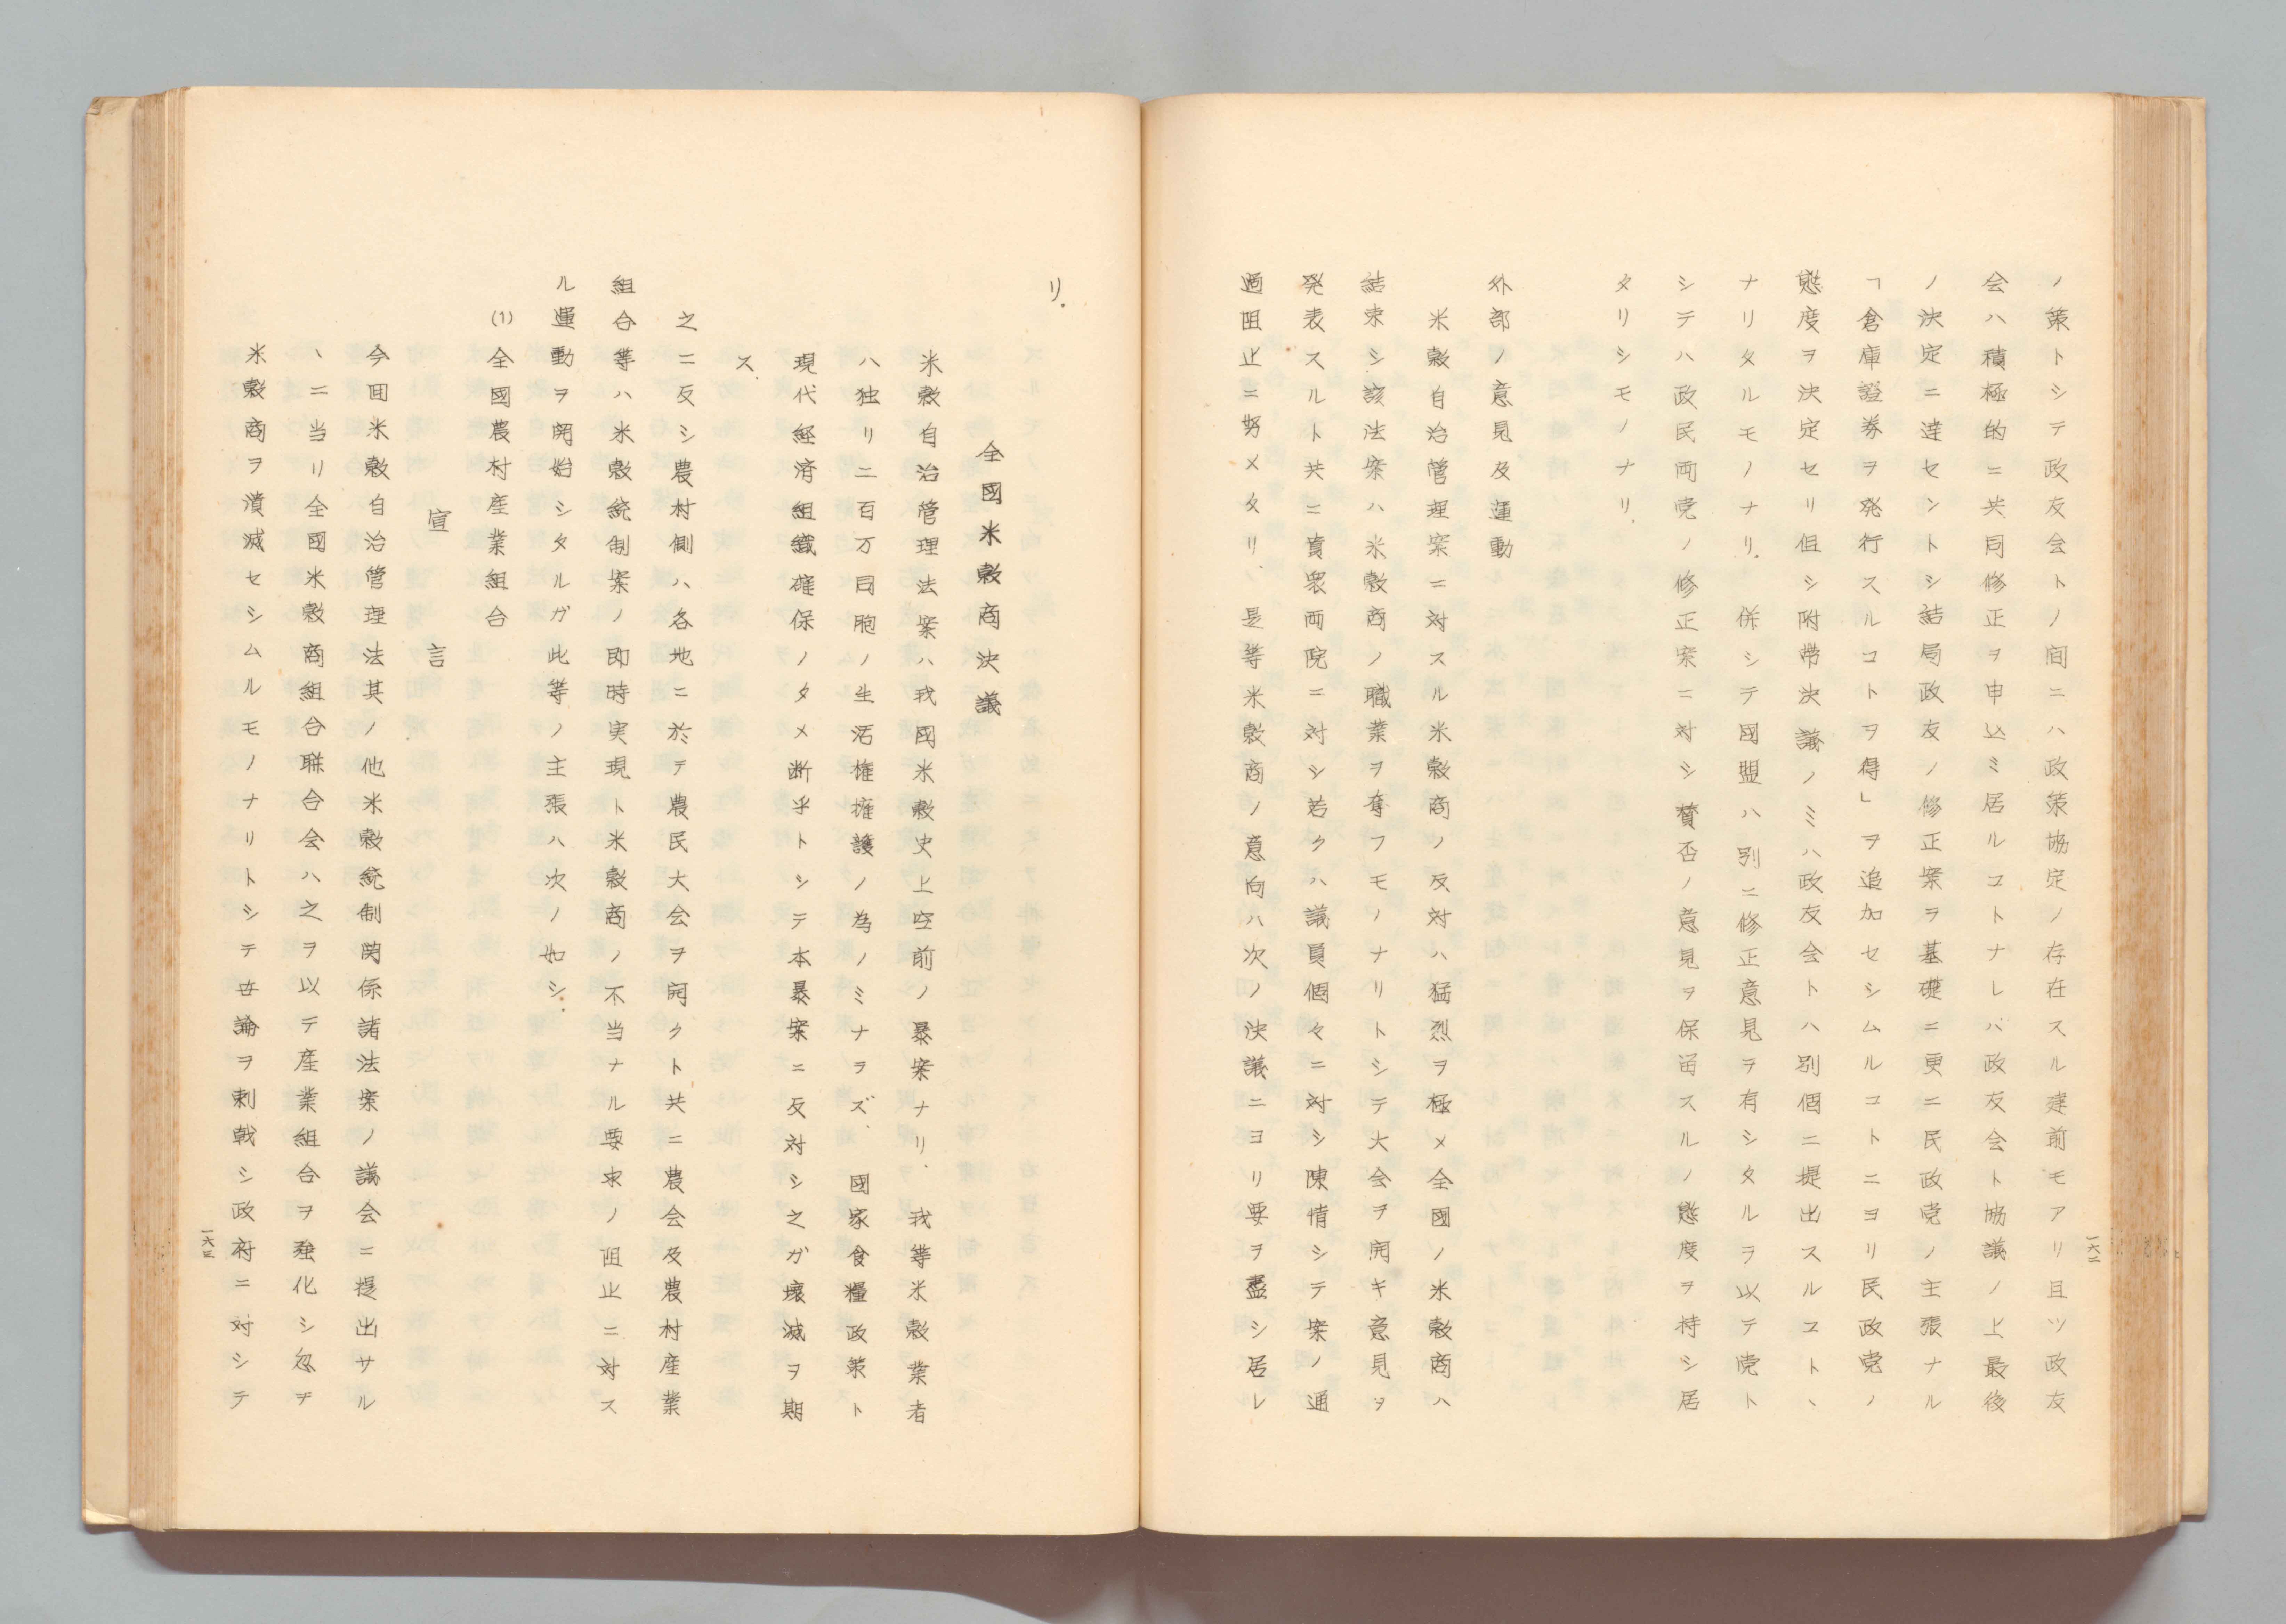 ノ策トシテ政友会トノ間ニハ政策協定ノ存在スル建前モアリ且ツ政友
会ハ積極的ニ共同修正ヲ申込ミ居ルコトナレバ政友会ト協議ノ上最後
ノ決定ニ達セントシ結局政友ノ修正案ヲ基礎ニ更ニ民政党ノ主張ナル
「倉庫證券ヲ発行スルコトヲ得」ヲ追加セシムルコトニヨリ民政党ノ
態度ヲ決定セリ但シ附帯決議ノミハ政友会トハ別個ニ提出スルコトヽ
ナリタルモノナリ. 併シテ國盟ハ別ニ修正意見ヲ有シタルヲ以テ党ト
シテハ政民両党ノ修正案ニ対シ賛否ノ意見ヲ保留スルノ態度ヲ持シ居
タリシモノナリ.
外部ノ意見及運動
米穀自治管理案ニ対スル米穀商ノ反対ハ猛烈ヲ極メ全國ノ米穀商ハ
結束シ該法案ハ米穀商ノ職業ヲ奪フモノナリトシテ大会ヲ開キ意見ヲ
発表スルト共ニ貴衆両院ニ対シ若クハ議員個々ニ対シ陳情シテ案ノ通
過阻止ニ努メタリ. 是等米穀商ノ意向ハ次ノ決議ニヨリ要ヲ盡シ居レ
一六二
リ.
全國米穀商決議
米穀自治管理法案ハ我國米穀史上空前ノ暴案ナリ. 我等米穀業者
ハ独リ二百万同胞ノ生活権擁護ノ為ノミナラズ. 國家食糧政策ト
現代経済組織確保ノタメ断乎トシテ本暴案ニ反対シ之ガ壊滅ヲ期
ス.
之ニ反シ農村側ハ各地ニ於テ農民大会ヲ開クト共ニ農会及農村産業
組合等ハ米穀統制案ノ即時実現ト米穀商ノ不当ナル要求ノ阻止ニ対ス
ル運動ヲ開始シタルガ此等ノ主張ハ次ノ如シ.
(1) 全國農村産業組合
宣言
今回米穀自治管理法其ノ他米穀統制関係諸法案ノ議会ニ提出サル
ヽニ当リ全國米穀商組合聯合会ハ之ヲ以テ産業組合ヲ強化シ忽チ
米穀商ヲ潰滅セシムルモノナリトシテ世論ヲ刺戟シ政府ニ対シテ
一六三